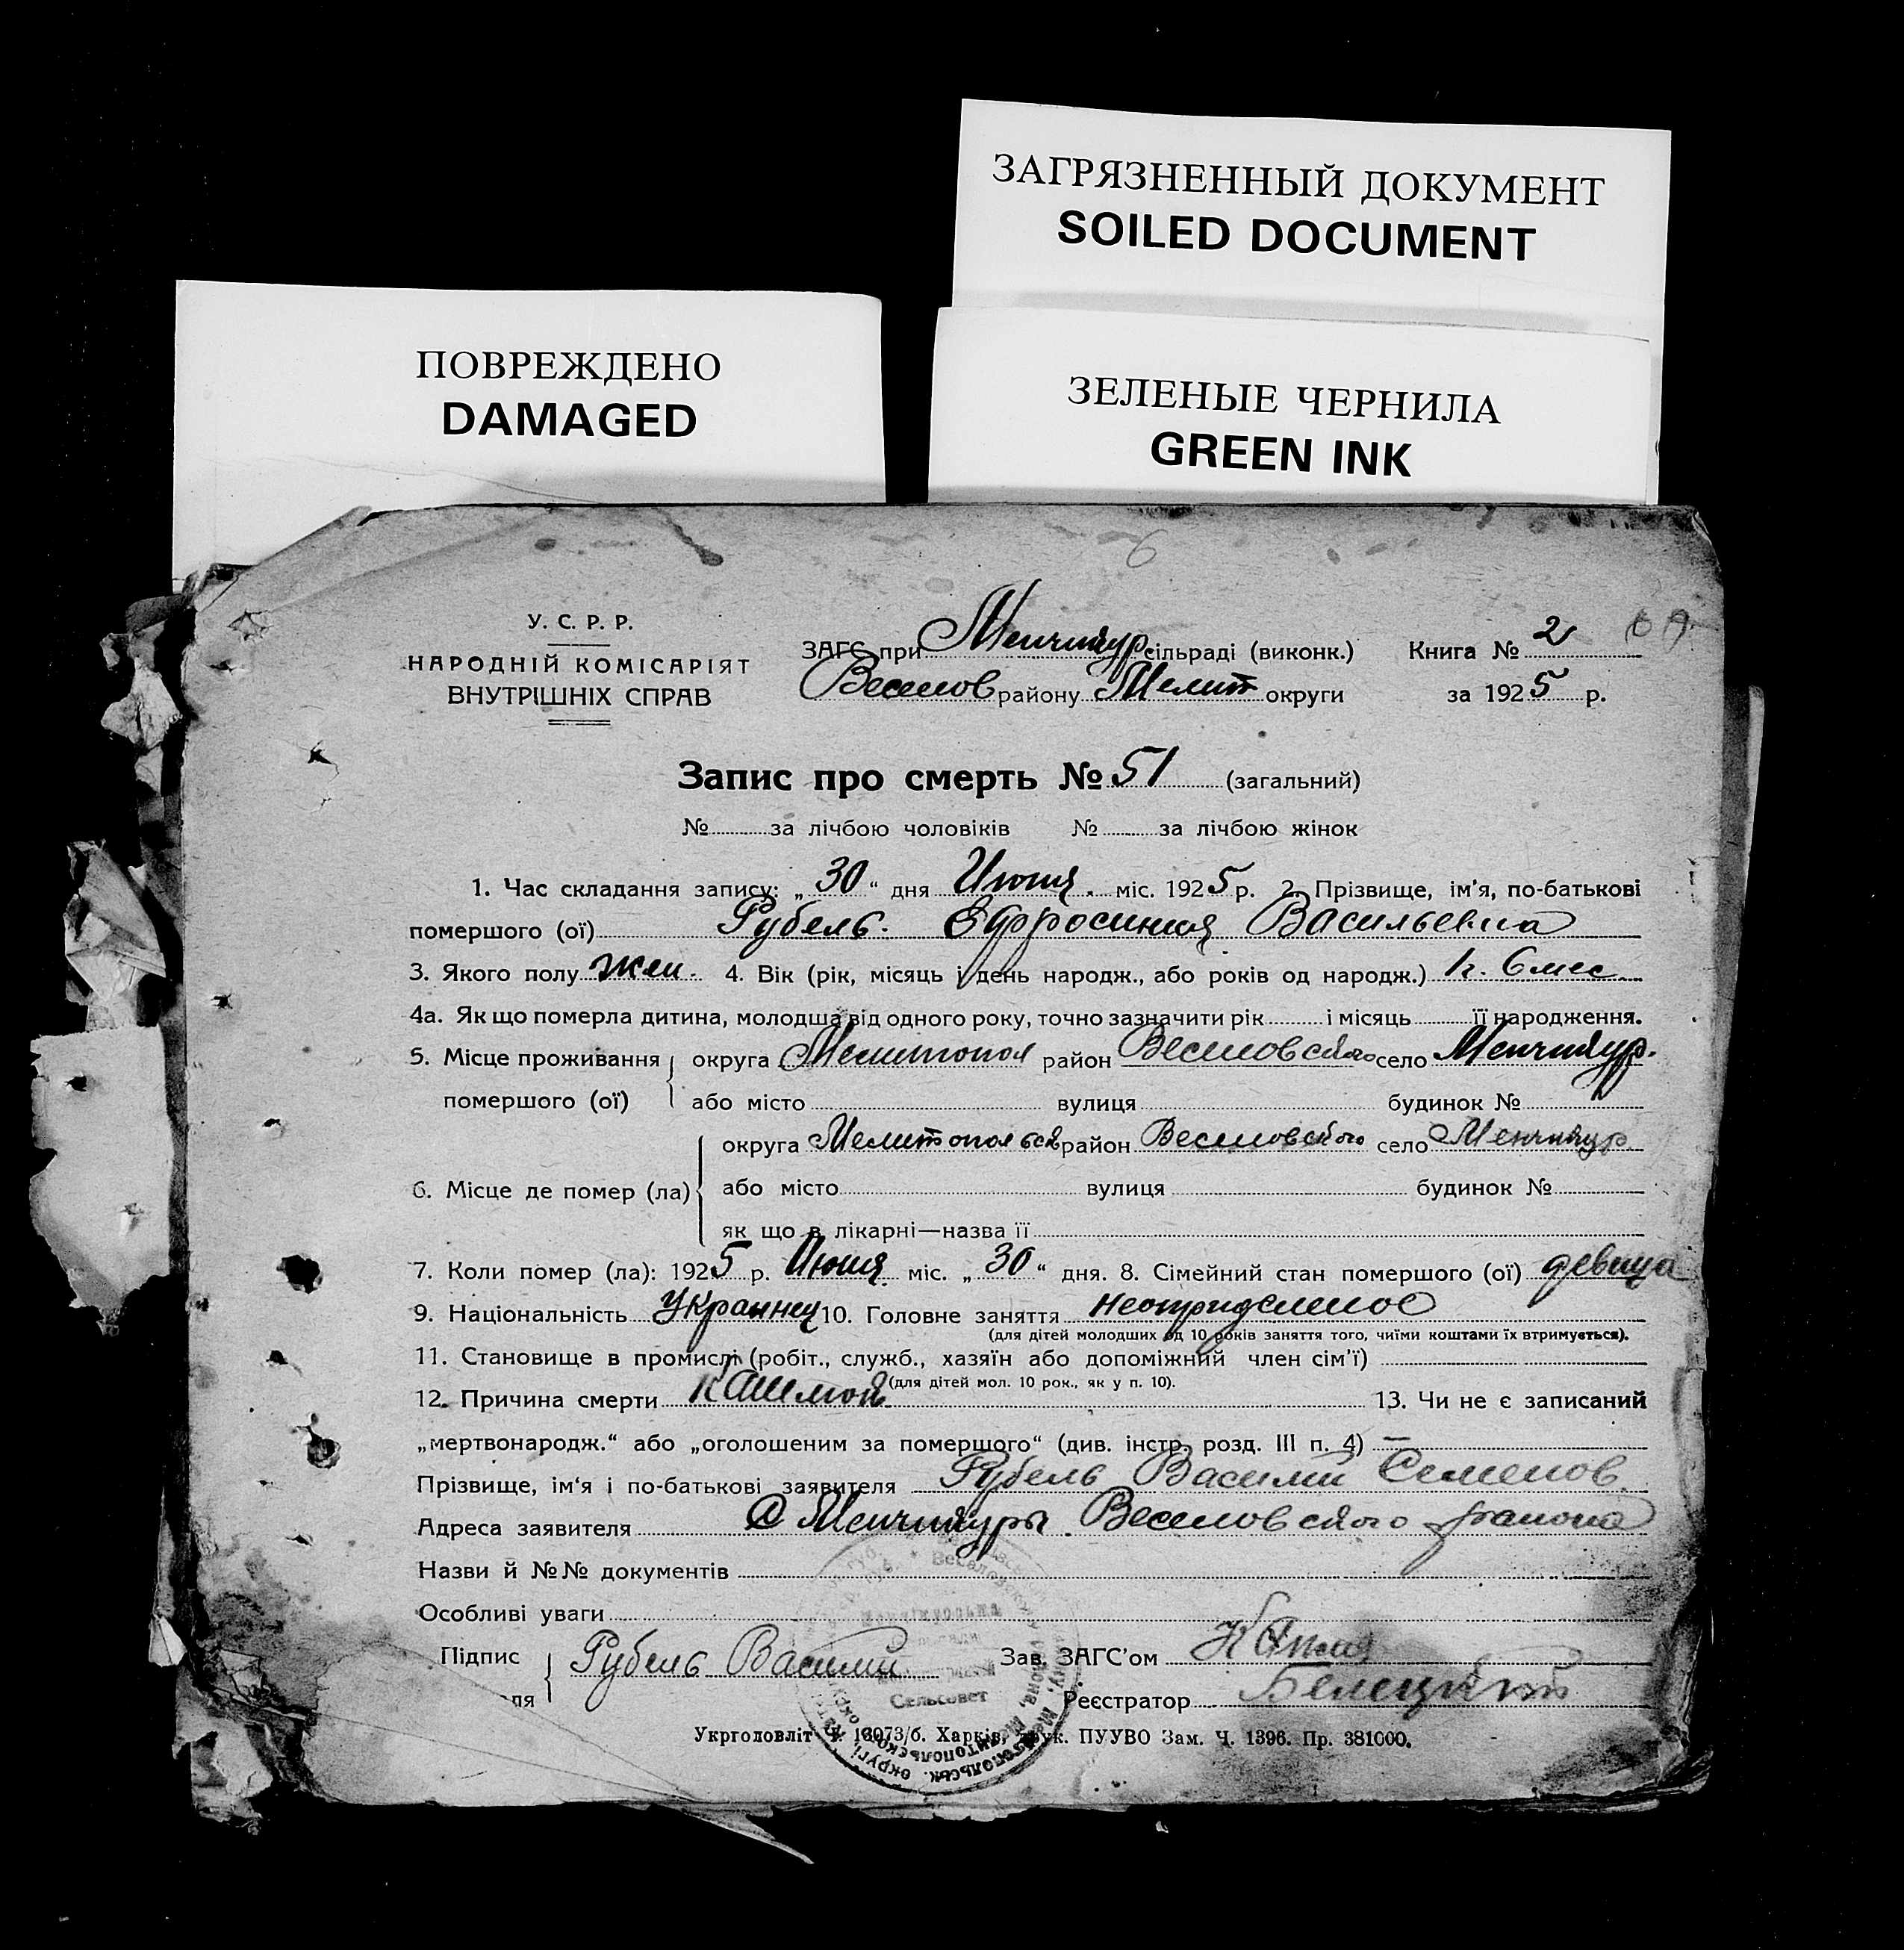 ЗАГРЯЗНЕННЫЙ ДОКУМЕНТ
SOILED DOCUMENT
ПОВРЕЖДЕНО
DAMAGED
ЗЕЛЕНЫЕ ЧЕРНИЛА
GREEN INK
6
У. С. Р. Р.
НАРОДНІЙ КОМІСАРІЯТ
ВНУТРІШНІХ СПРАВ
ЗАГС при Менчикур сільраді (виконк.) Книга № 2
Веселов району Мелит округи за 1925 р.
Запис про смерть № 51 (загальний)
№ за лічбою чоловіків № за лічбою жінок
1. Час складання запису: „30“ дня Июня. міс. 1925 р. 2. Прізвище, ім'я, по-батькові
помершого (ої) Рубель. Ефросиния Васильевна
3. Якого полу жен. 4. Вік (рік, місяць і день народж., або років од народж.) 1г. 6 мес
4а. Як що померла дитина, молодша від одного року, точно зазначити рік і місяць її народження.
5. Місце проживання округа Мелитопол район Веселовского село Менчикур.
помершого (ої) або місто вулиця будинок №
округа Мелитопольск район Веселовского село Менчикур
6. Місце де помер (ла) або місто вулиця будинок №
як що в лікарні—назва її
7. Коли помер (ла): 1925 р. Июня міс. „30“ дня. 8. Сімейний стан помершого (ої) девица
9. Національність Украинец 10. Головне заняття
(для дітей молодших од 10 років заняття того, чиїми коштами їх втримується).
11. Становище в промислі (робіт., служб., хазяїн або допоміжний член сім'ї)
(для дітей мол. 10 рок., як у п. 10).
12. Причина смерти Кашлюк 13. Чи не є записаний
„мертвонародж.“ або „оголошеним за померщого“ (див. інстр. розд. III п. 4) —
Прізвище, ім'я і по-батькові заявителя Рубель Василий Семенов.
Адреса заявителя С Менчикуры. Веселовского района
Назви й №№ документів
Особливі уваги
Підпис Рубель Василий Зав. ЗАГС'ом
ля Реєстратор Белецкий
Сельсовет
Укрголовліт 13073/б. Харків, друк. ПУУВО Зам. Ч. 1396. Пр. 381000.